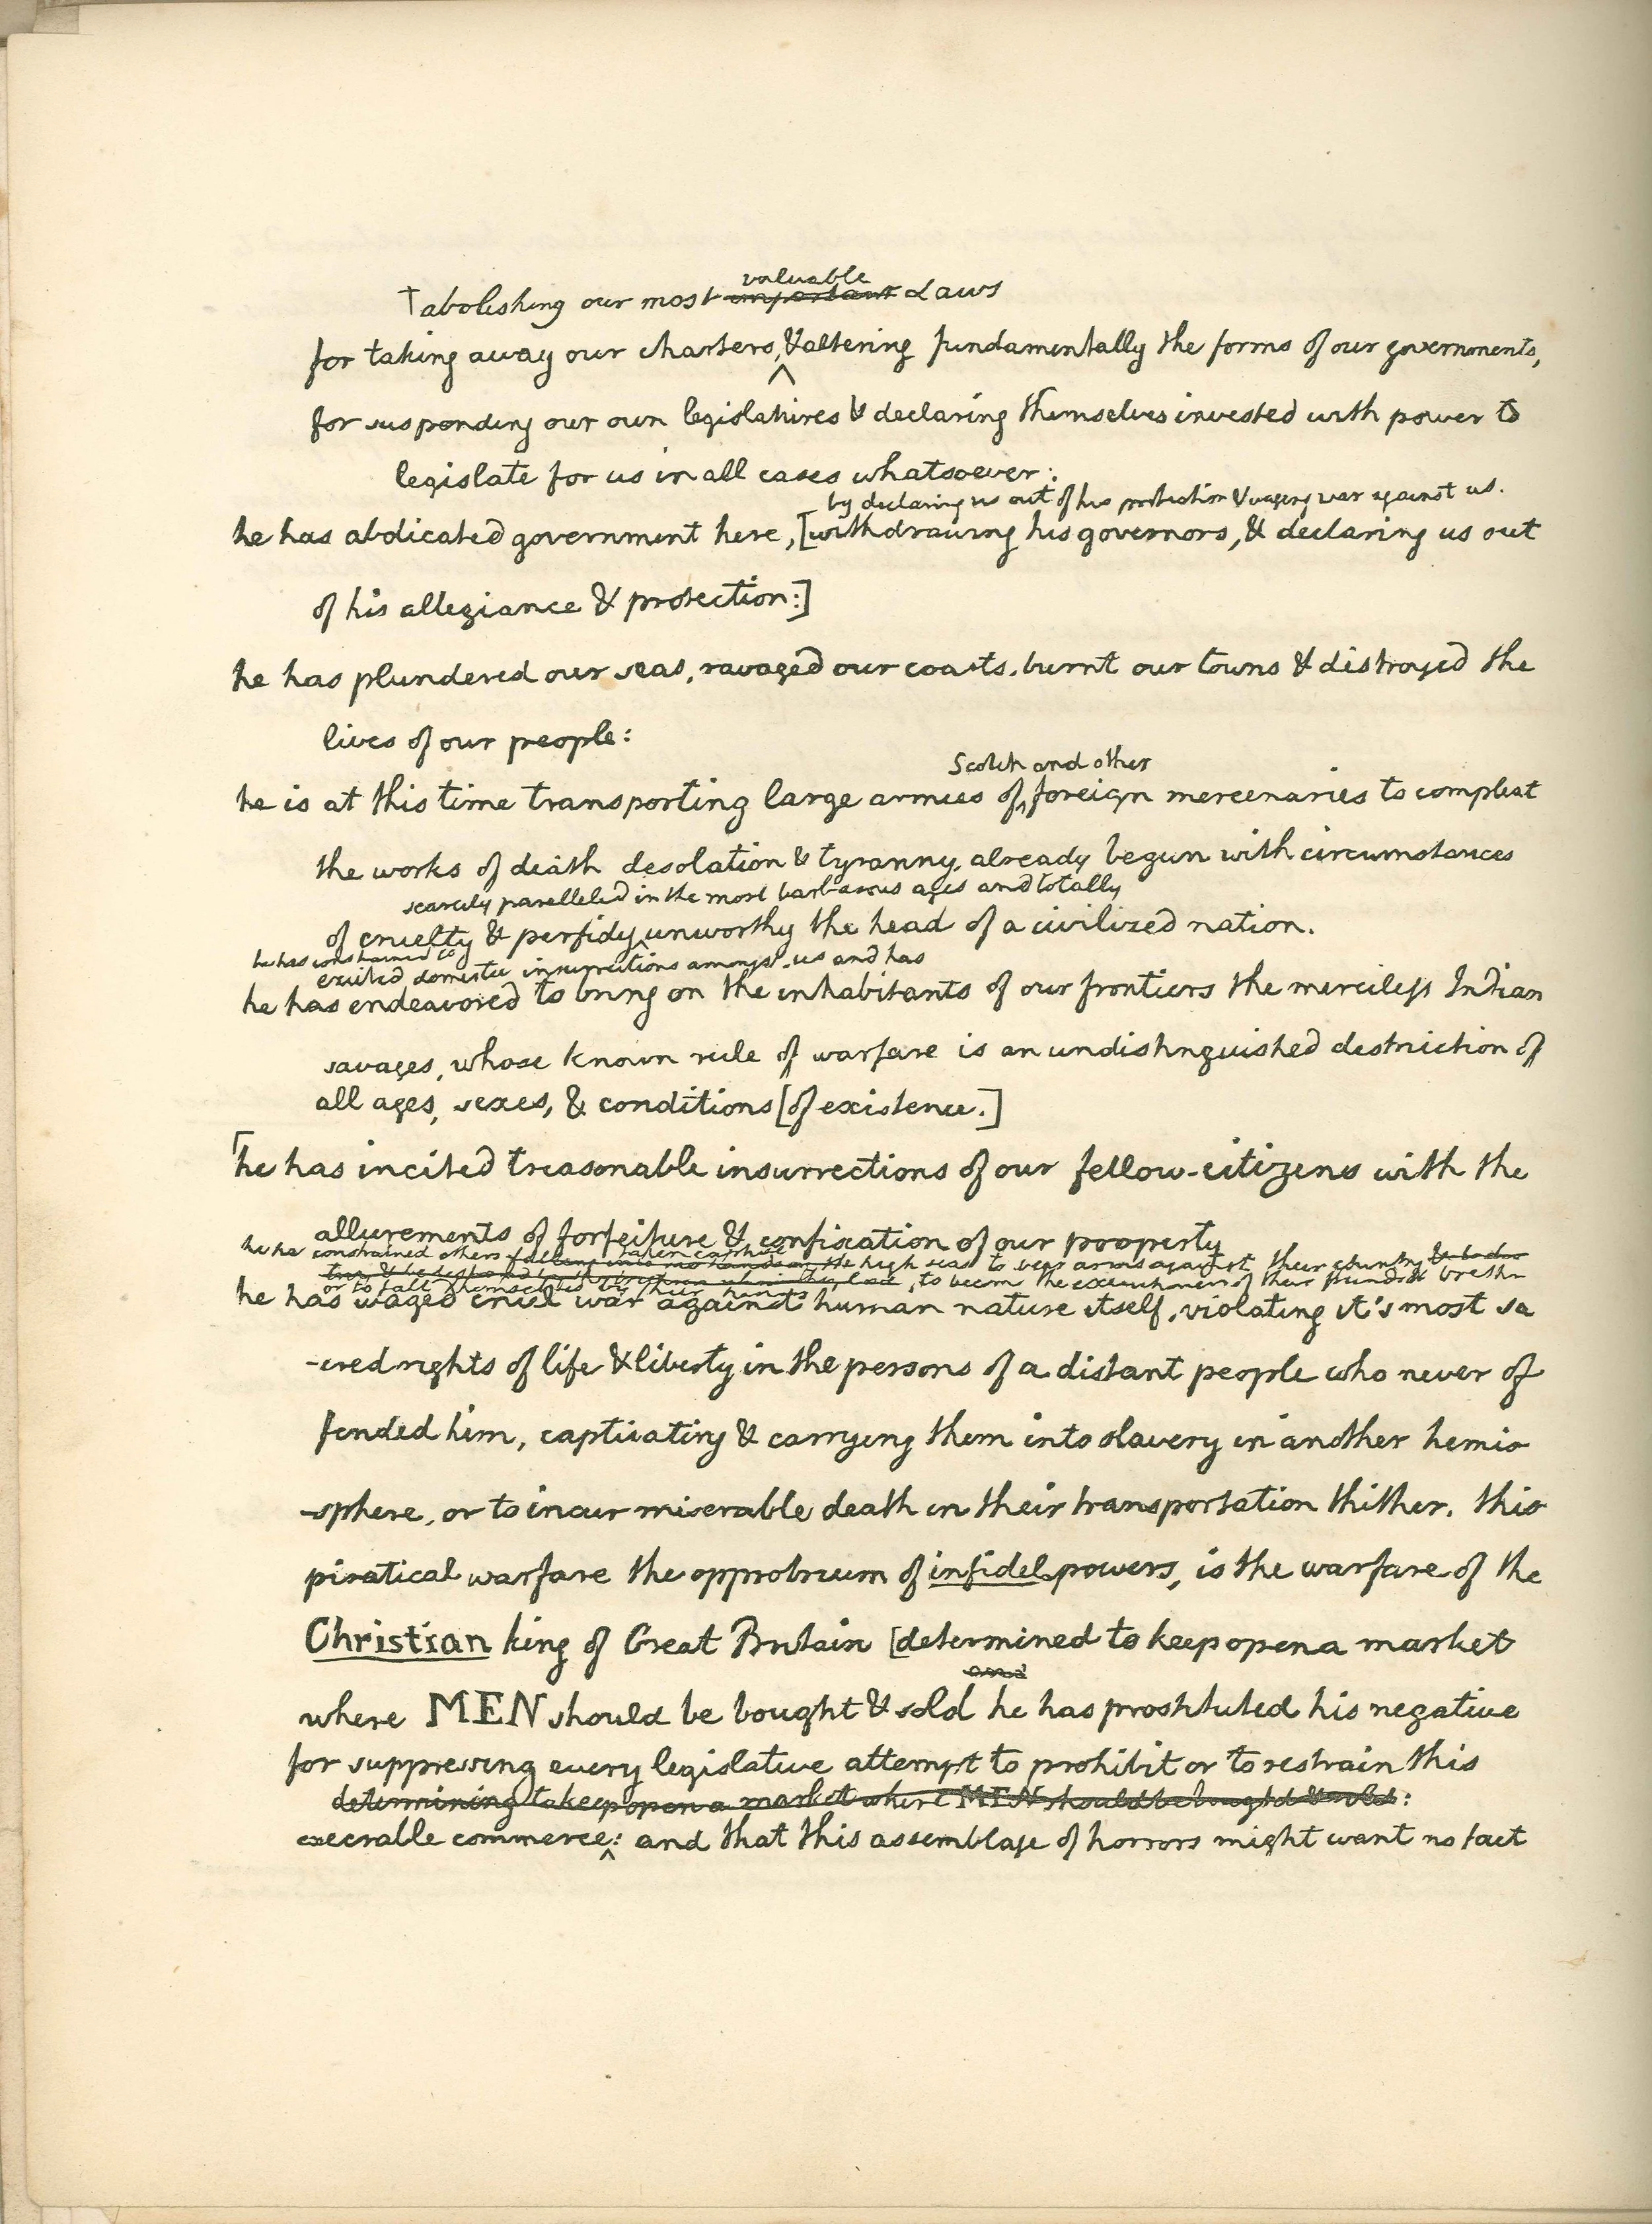 valuable
†abolishing our most important Laws
for taking away our charters, & altering fundamentally the forms of our governments,
for suspending our own legislatures & declaring themselves invested with power to
legislate for us in all cases whatsoever:
by declaring us out of his protection & waging war against us.
he has abdicated government here, [withdrawing his governors, & declaring us out
of his allegiance & protection:]
he has plundered our seas, ravaged our coasts, burnt our towns & distroyed the
lives of our people:
Scotch and other
he is at this time transporting large armies of ^ foreign mercenaries to compleat
the works of death desolation & tyranny, already begun with circumstances
scarcely paralleled in the most barbarous ages and totally
of cruelty & perfidy ^ unworthy the head of a civilized nation.
he has
excited domestic insurrections amongst us and has
he has endeavored to bring on the inhabitants of our frontiers the merciless Indian
savages, whose known rule of warfare is an undistinguished destruction of
all ages, sexes, & conditions [of existence.]
[he has incited treasonable insurrections of our fellow-citizens with the
allurements of forfeiture & confiscation of our property
taken captive
he has constrained others falling into his hands on the high seas to bear arms against their country
to becom the executioners of their friends & brethr
or to fall themselves by their hands
he has waged cruel war against human nature itself, violating it's most sa
-cred rights of life & liberty in the persons of a distant people who never of
fended him, captivating & carrying them into slavery in another hemis
-sphere, or to incur miserable death in their transportation thither. this
piratical warfare the opprobrium of infidel powers, is the warfare of the
Christian king of Great Britain [determined to keep open a market
and
where MEN should be bought & sold he has prostituted his negative
for suppressing every legislative attempt to prohibit or to restrain this
determining to keep open a market where MEN should be bought & sold:
execrable commerce ^: and that this assemblage of horrors might want no fact